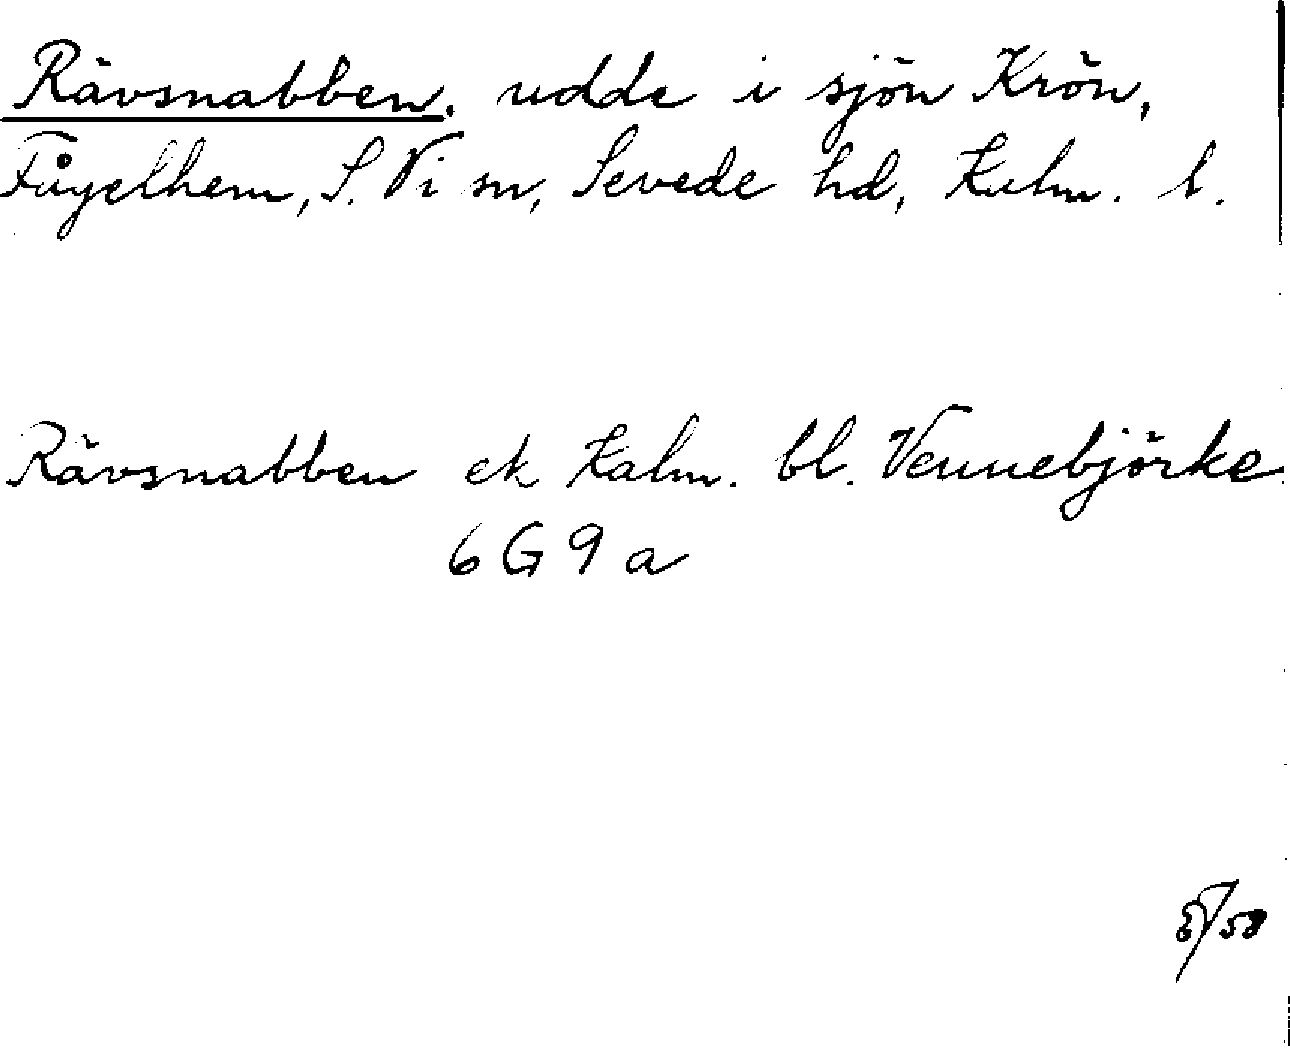 Rävsnabben, udde i sjön Krön,
Fågelhem, S. Vi sn, Sevede hd, Kalm. l.
Rävsnabben ek Kalm. bl. Vennebjörke
6 G 9 a